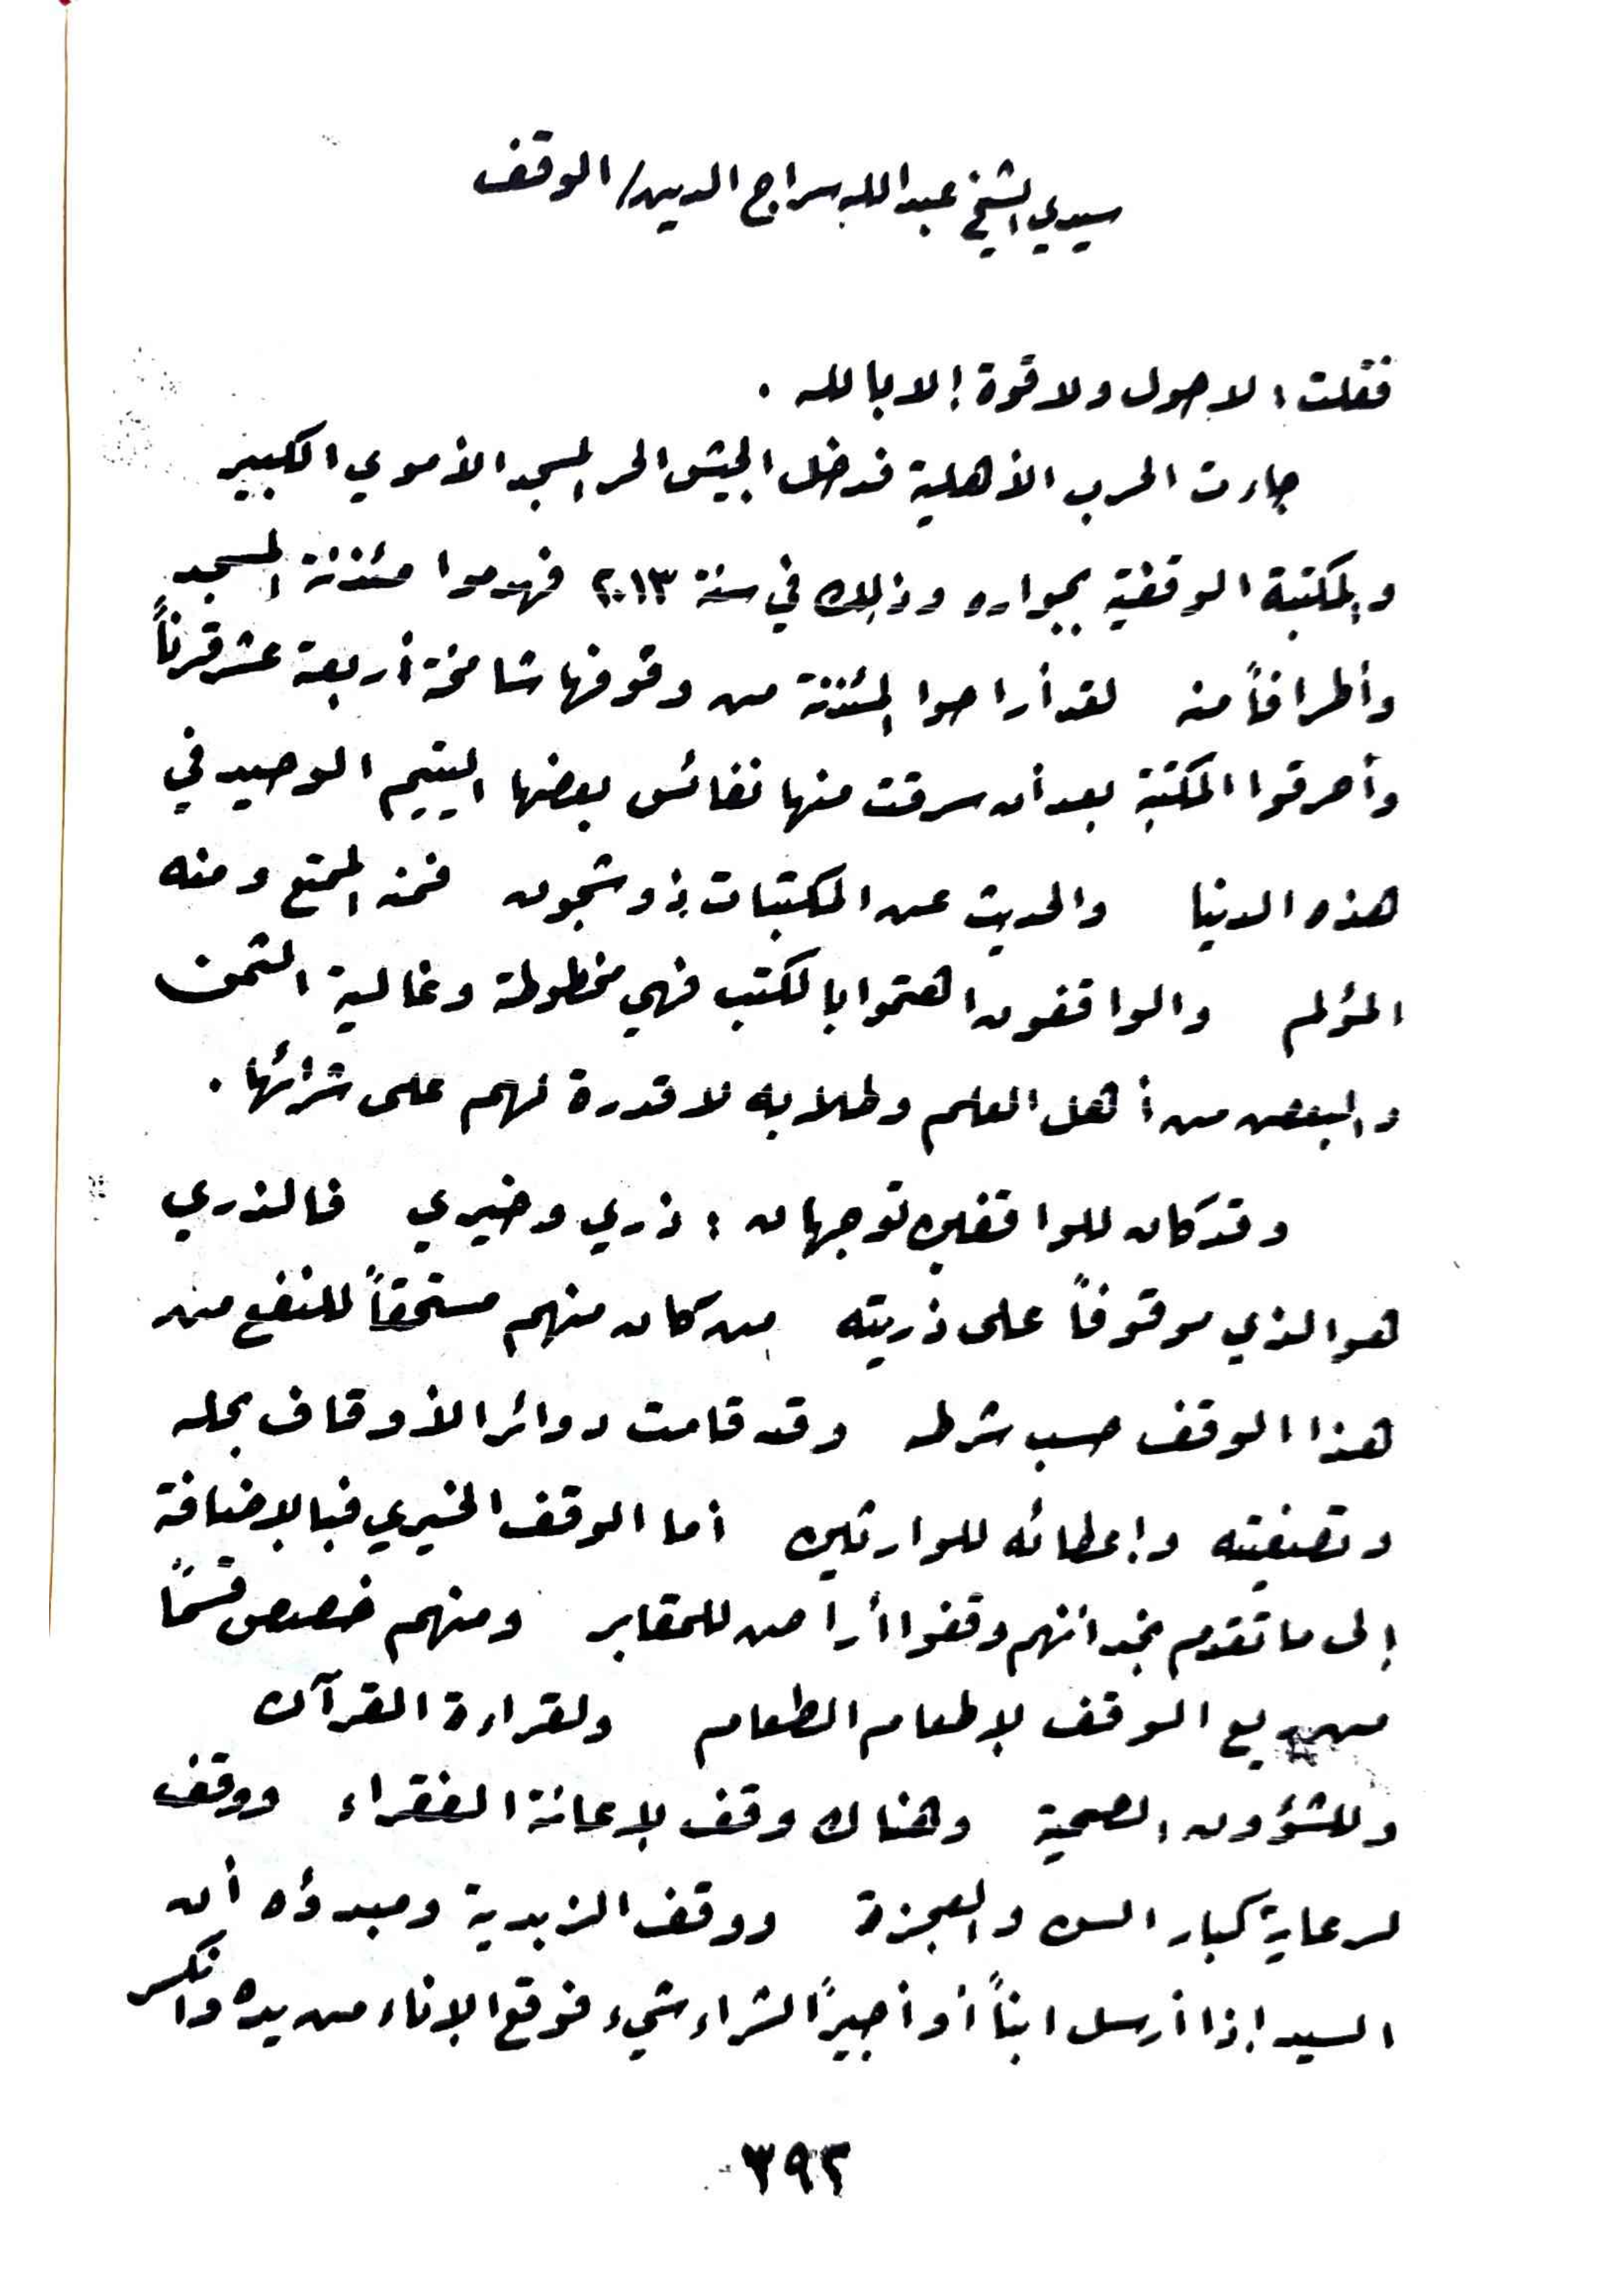 سيدي الشيخ عبد الله سراج الدين / الوقف
فقلت : لا حول ولا قوة إلا بالله .
جاءت الحرب الأهلية فدخل الجيش الحر المسجد الأموي الكبير
والمكتبة الوقفية بجواره وذلك في سنة ٢٠١٣ فهدموا مئذنة المسجد
وأطرافاً منه لقد أراحوا المئذنة من وقوفها شامخة أربعة عشر قرناً
وأحرقوا المكتبة بعد أن سرقت منها نفائس بعضها اليتيم الوحيد في
هذه الدنيا والحديث عن المكتبات ذو شجون فمنه الممتع ومنه
المؤلم والواقفون اهتموا بالكتب فهي مخطوطة وغالية الثمن
والبعض من أهل العلم وطلابه لا قدرة لهم على شرائها .
وقد كان للواقفين توجهان : ذري وخيري فالذري
هو الذي موقوفاً على ذريته من كان منهم مستحقاً للنفع من
هذا الوقف حسب شرطه وقد قامت دوائر الأوقاف بحله
وتصفيته وإعطائه للوارثين أما الوقف الخيري فبالإضافة
إلى ما تقدم نجد أنهم وقفوا أراض للمقابر ومنهم خصص قسماً
من ريع الوقف لإطعام الطعام ولقراءة القرآن
وللشؤون الصحية وهناك وقف لإعانة الفقراء ووقف
لرعاية كبار السن والعجزة ووقف الزبدية ومبدؤه أن
السيد إذا أرسل ابناً أو أجيراً لشراء شيء فوقع الإناء من يده وانكسر
٣٩٢